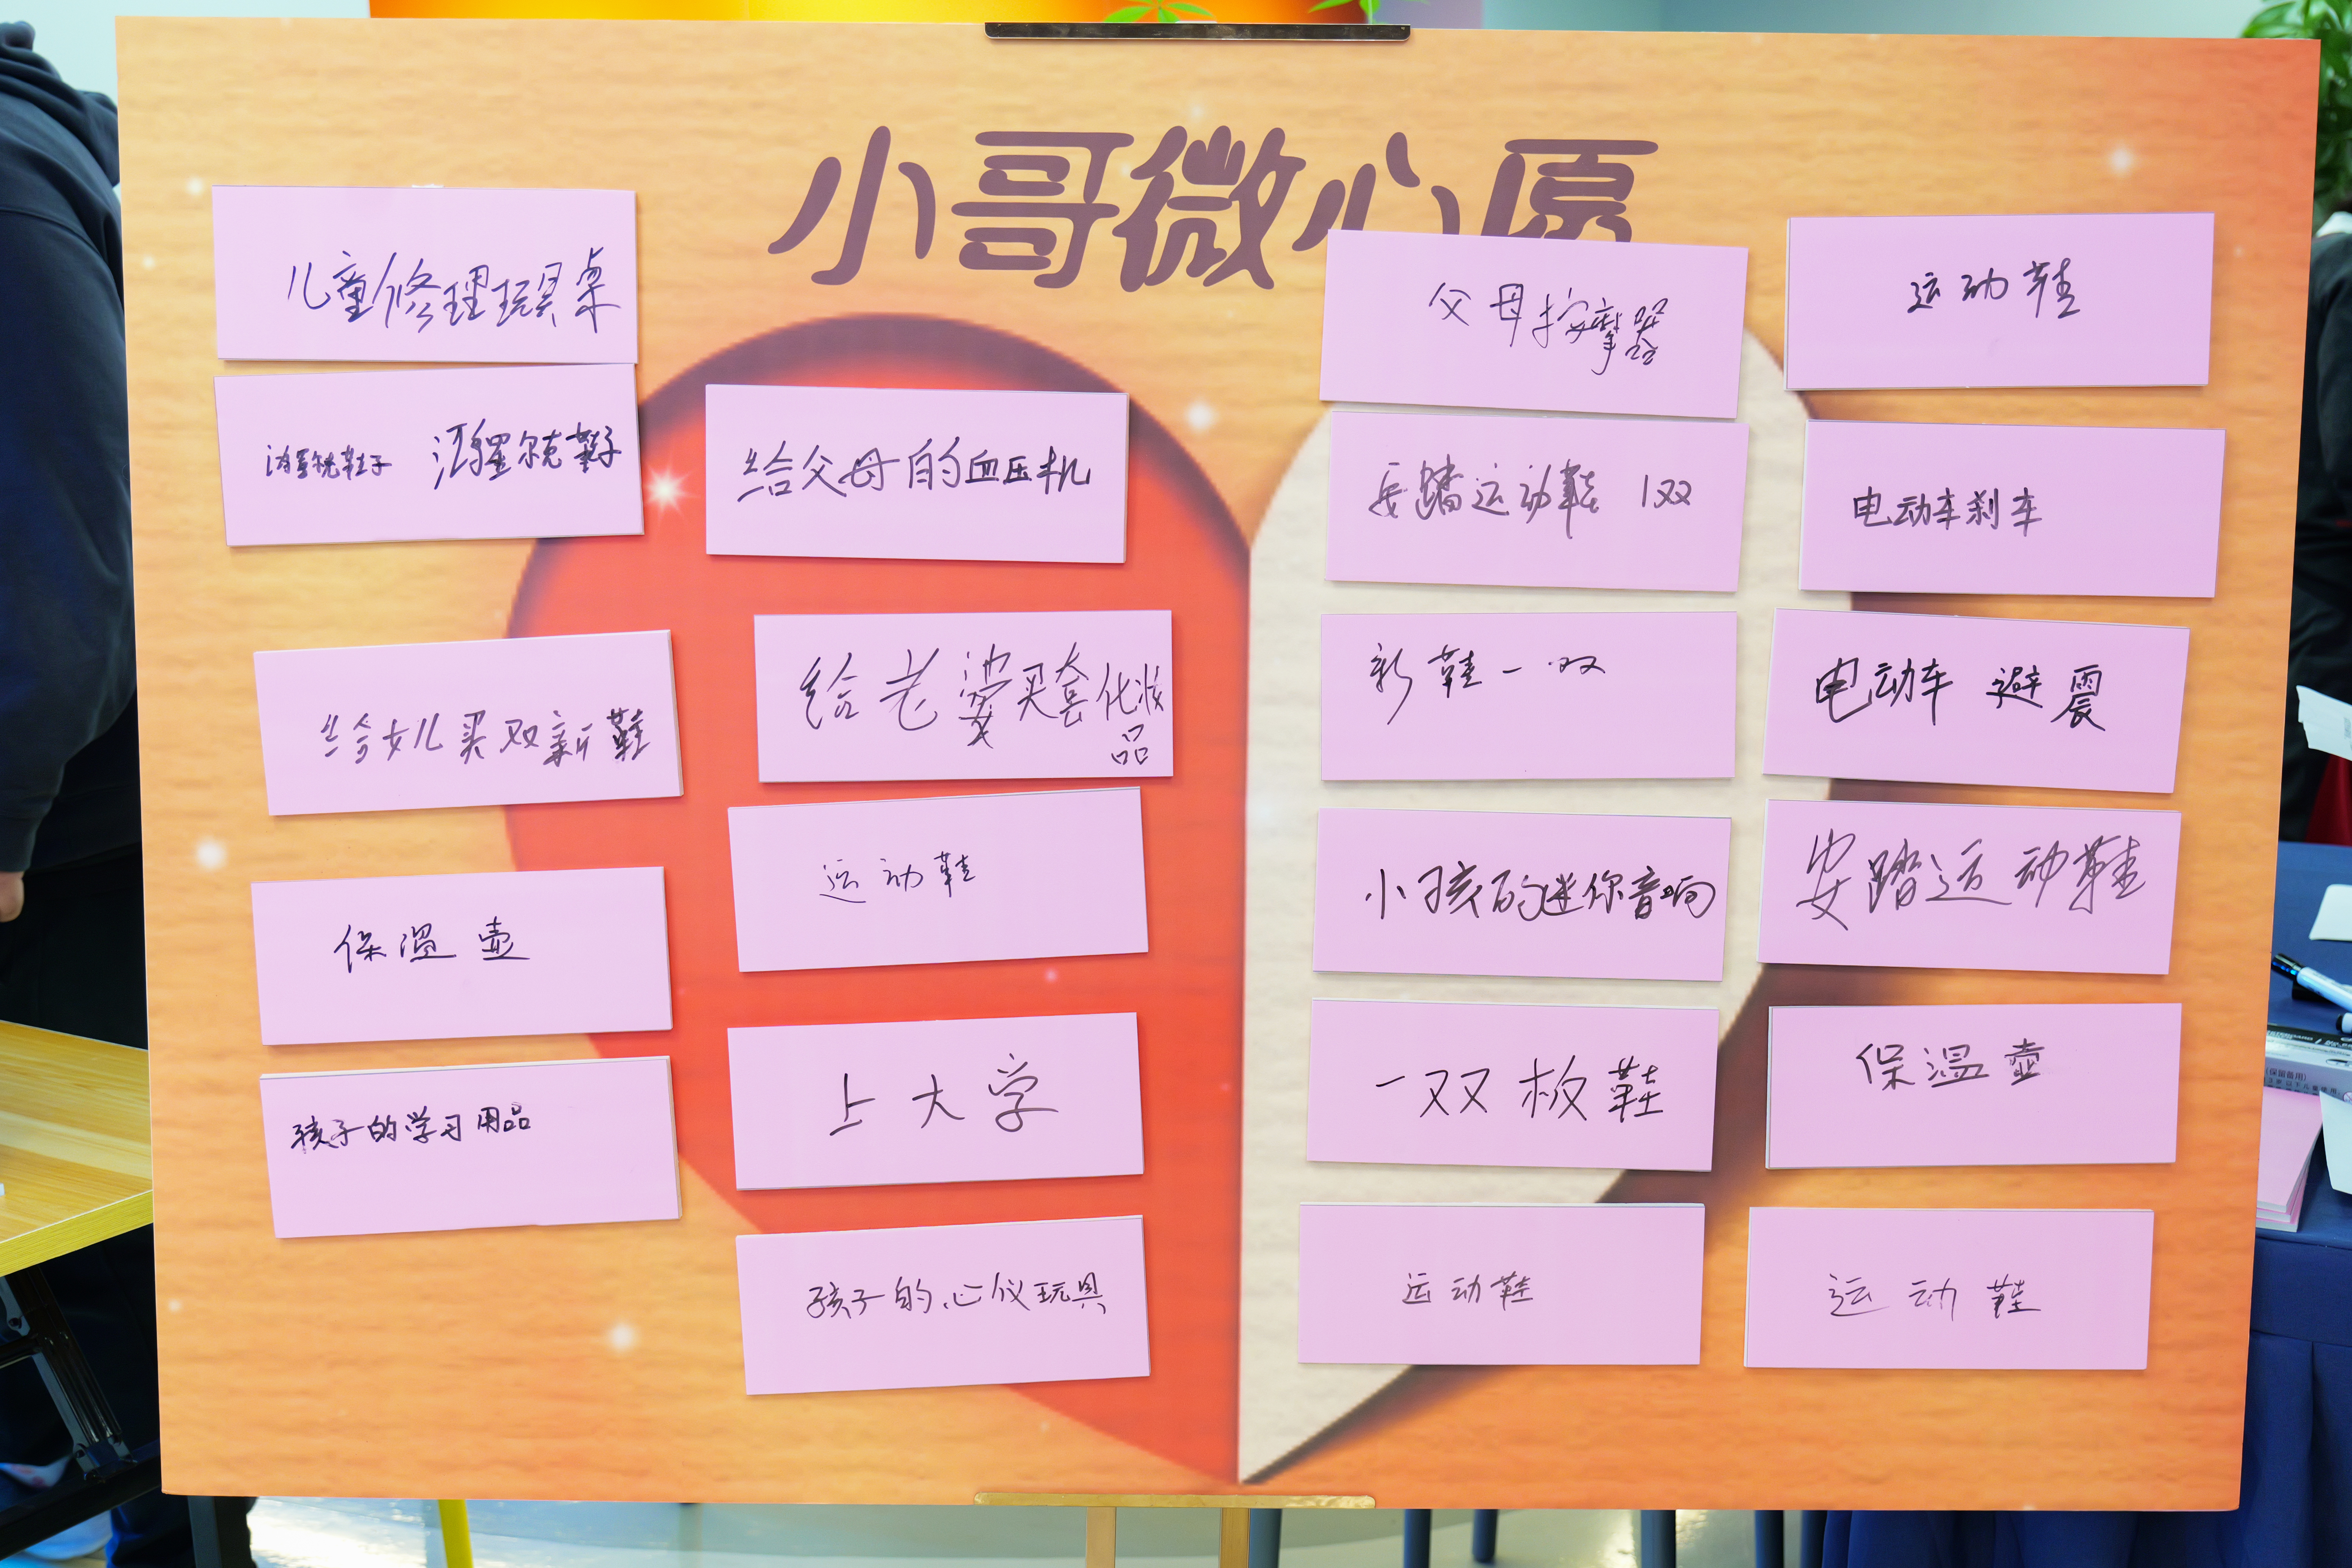 小哥微心愿
儿童修理玩具桌
鸿星尔克鞋子 鸿星尔克鞋子
给女儿买双新鞋
保温壶
孩子的学习用品
给父母的血压机
给老婆买套化妆
品
运动鞋
上大学
孩子的心仪玩具
父母按摩器
安踏运动鞋 1双
新鞋一双
小孩的迷你音响
一双板鞋
运动鞋
运动鞋
电动车刹车
电动车 避震
安踏运动鞋
保温壶
运动鞋